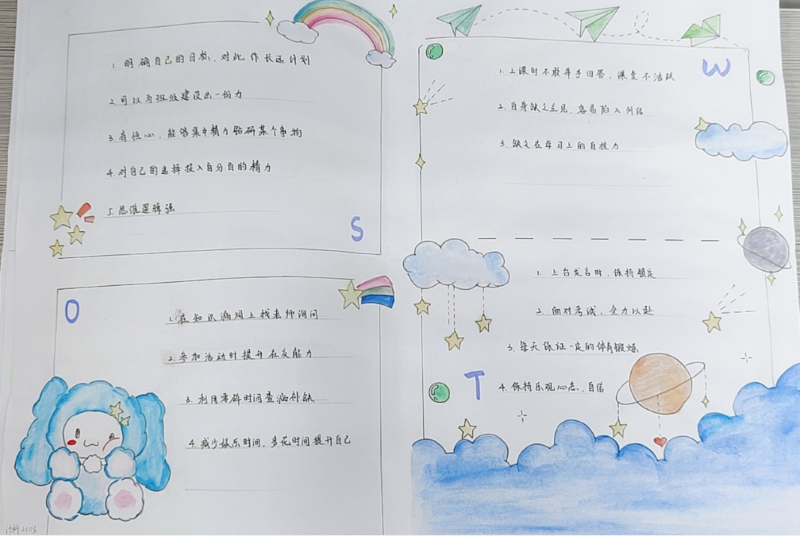 1. 明确自己的目标，对此作长远计划
2. 可以为班级建设出一份力
3. 有恒心，能够集中精力钻研某个事物
4. 对自己的选择投入百分百的精力
5. 思维逻辑强
S
1. 上课时不敢举手回答，课堂不活跃
W
2. 自身缺乏主见，容易陷入纠结
3. 缺乏在学习上的自控力
O
1. 在知识漏洞上找老师询问
2. 参加活动时提升社交能力
3. 利用零碎时间查漏补缺
4. 减少娱乐时间，多花时间提升自己
1. 上台发言时，保持镇定
2. 面对考试，全力以赴
3. 每天保证一定的体育锻炼
T
4. 保持乐观心态，自信